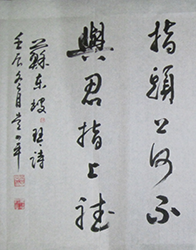 指頭上何不
與君指上聽
蘇東坡琴詩
壬辰冬月